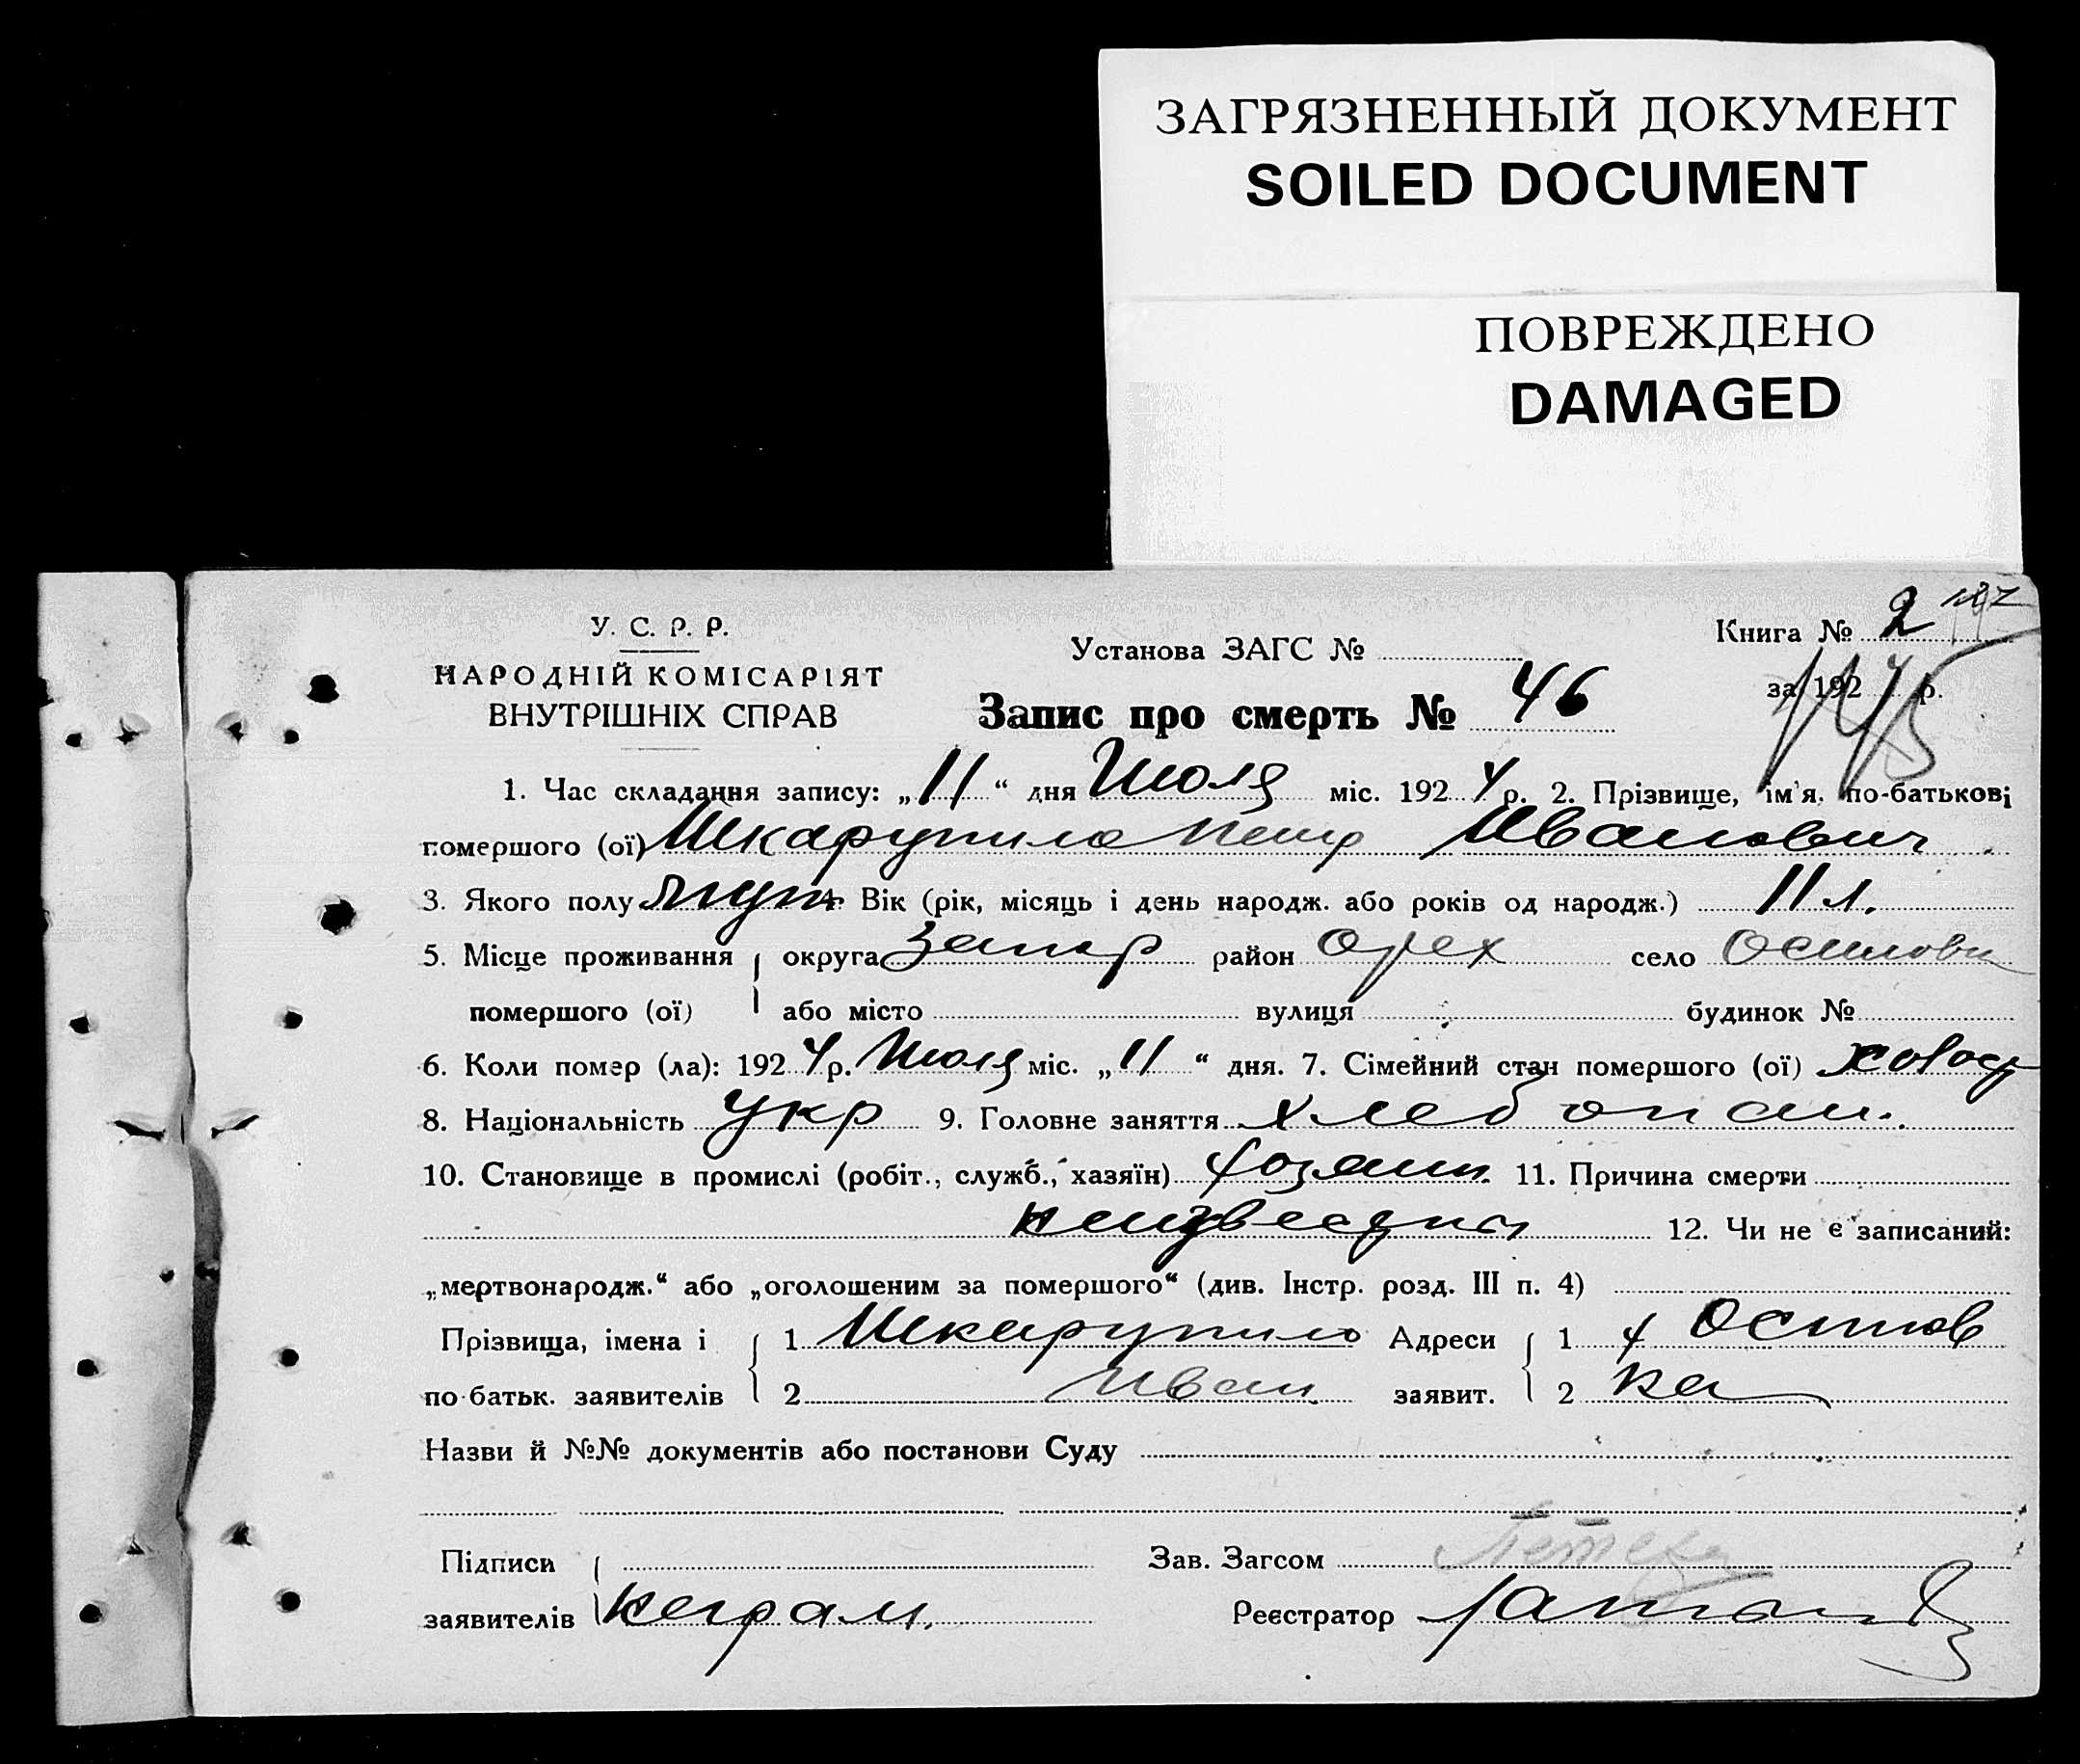 ЗАГРЯЗНЕННЫЙ ДОКУМЕНТ
SOILED DOCUMENT
ПОВРЕЖДЕНО
DAMAGED
У. С. Р. Р.
НАРОДНІЙ КОМІСАРІЯТ
ВНУТРІШНІХ СПРАВ
Установа ЗАГС №
Запис про смерть № 46
Книга № 2
за 192 4 р.
145
1. Час складання запису: „11“ дня Июля міс. 192 4 р. 2. Прізвище, ім'я, по-батькові
помершого (ої) Шкарупило Петр Иванович
3. Якого полу муж 4. Вік (рік, місяць і день народж. або років од народж.) 11 л.
5. Місце проживання округа Запор район Орех село Осиповка
помершого (ої) або місто вулиця будинок №
6. Коли помер (ла): 192 4 р. Июля міс. „11“ дня. 7. Сімейний стан помершого (ої) холост
8. Національність Укр 9. Головне заняття хлебопаш.
10. Становище в промислі (робіт., служб., хазяїн) хозяин 11. Причина смерти
неизвестна 12. Чи не є записаний:
„мертвонародж.“ або „оголошеним за помершого“ (див. Інстр. розд. III п. 4)
Прізвища, імена і 1 Шкарупило Адреси 1 х Осипов
по-батьк. заявителів 2 Иван заявит. 2 ка
Назви й №№ документів або постанови Суду
Підписи Зав. Загсом
заявителів неграм. Реєстратор